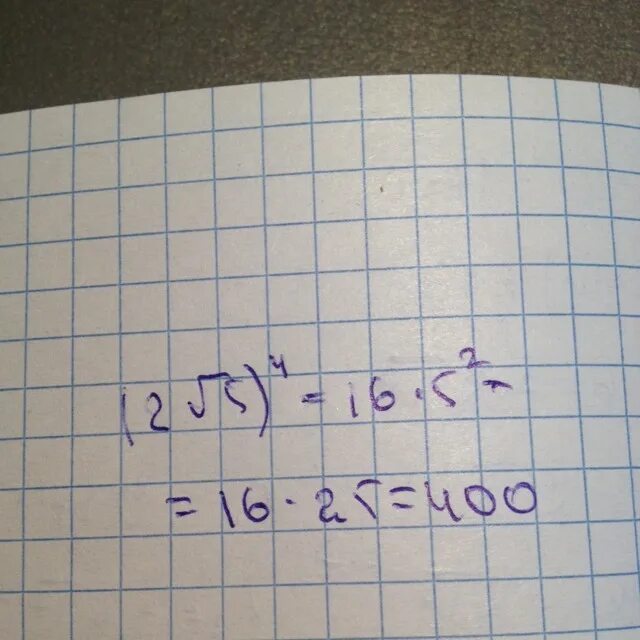 (2√5)⁴ = 16 · 5² =
= 16 · 25 = 400